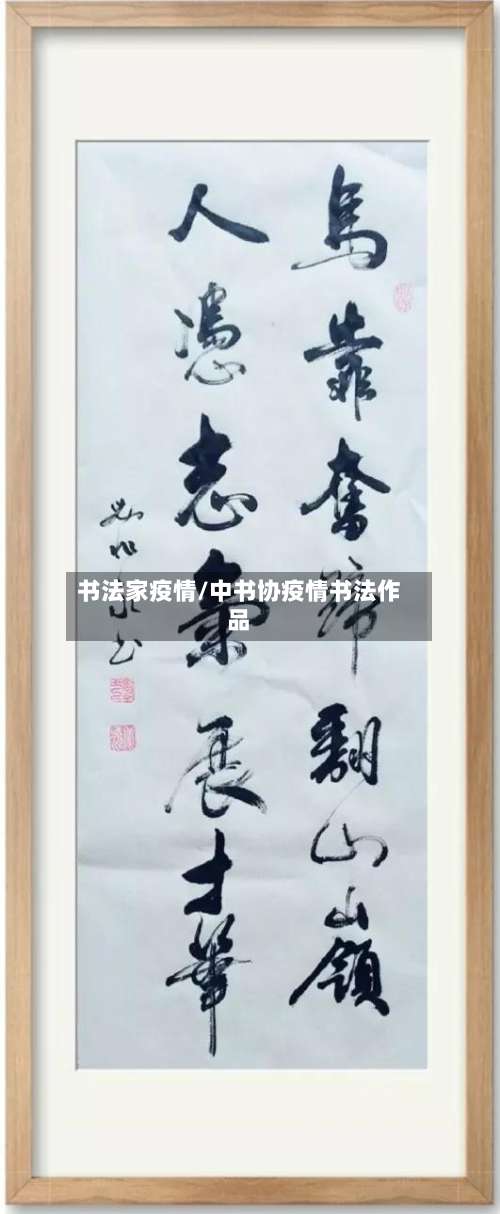 馬靠奮蹄翻山嶺
人憑志氣展才華
书法家疫情/中书协疫情书法作
品